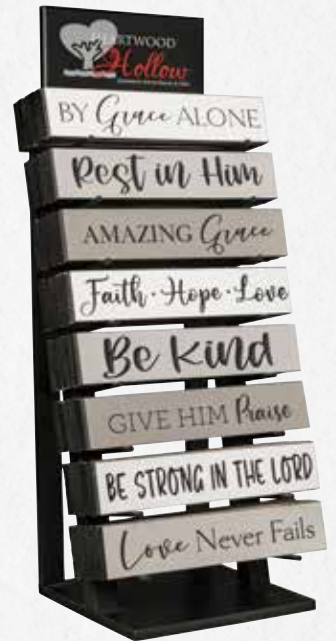 HEARTWOOD
Hollow
BY Grace ALONE
Rest in Him
AMAZING Grace
Faith · Hope · Love
Be Kind
GIVE HIM Praise
BE STRONG IN THE LORD
Love Never Fails